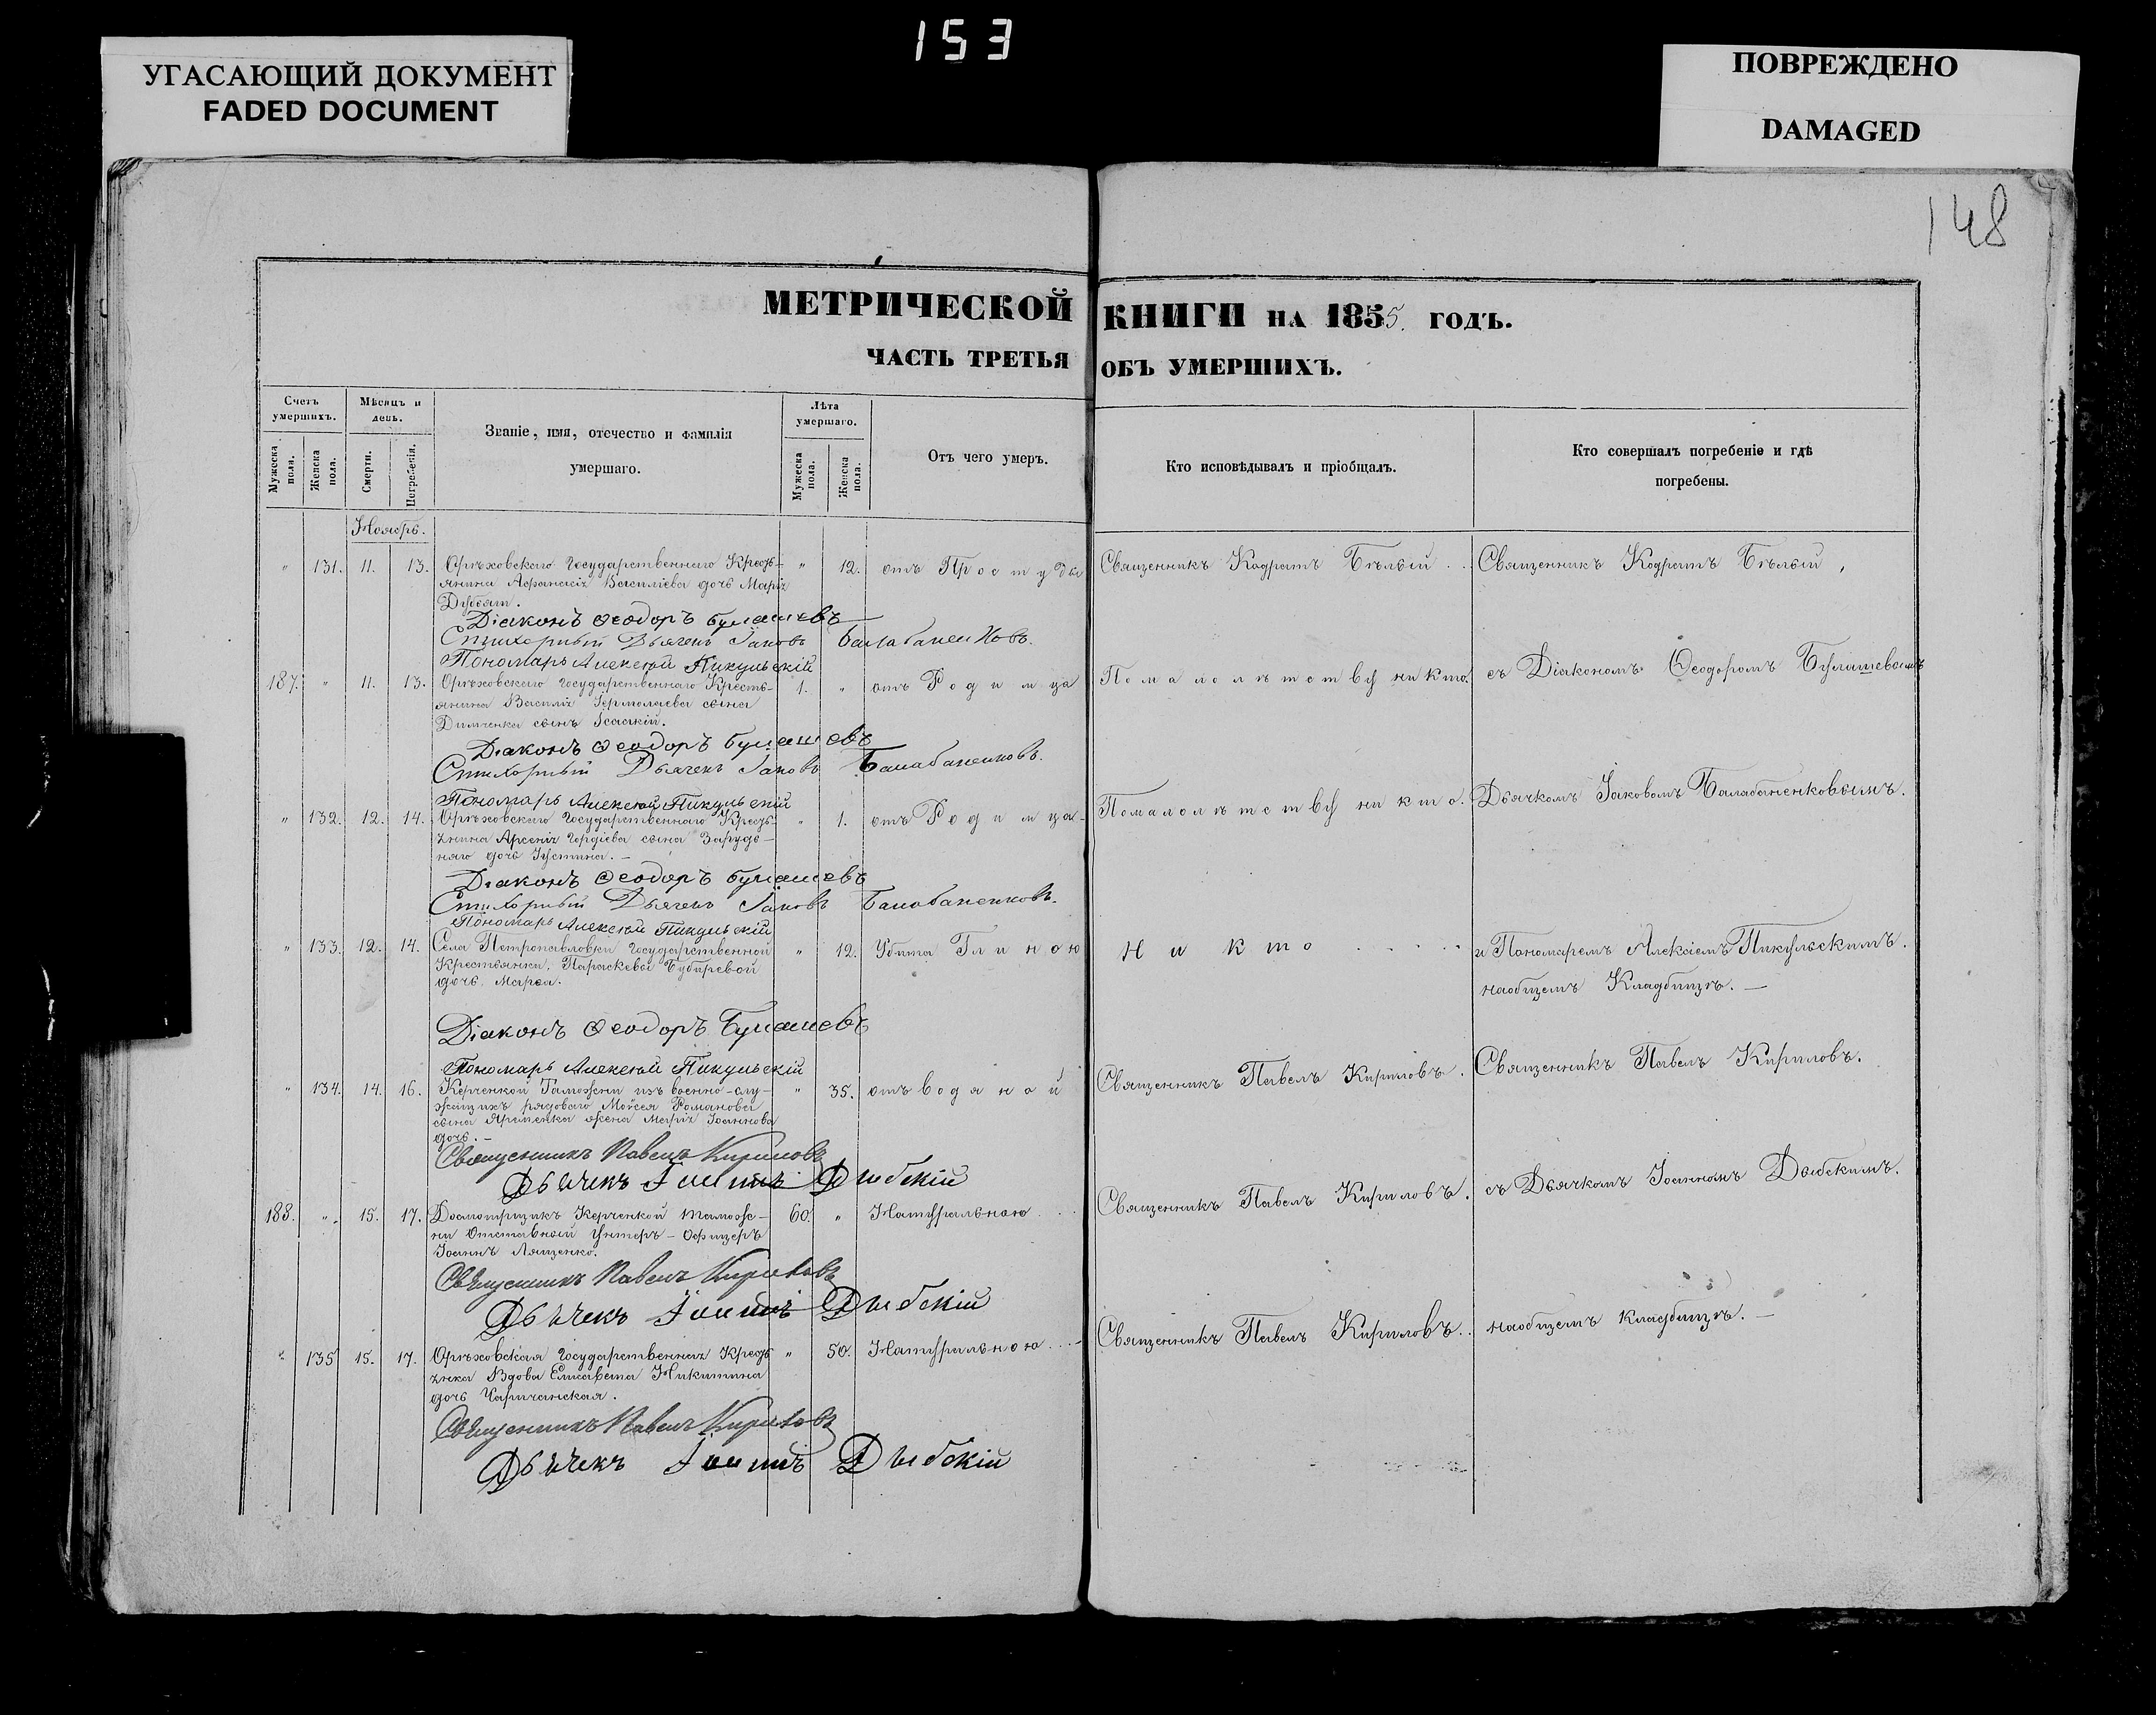 153
УГАСАЮЩИЙ ДОКУМЕНТ
FADED DOCUMENT
ПОВРЕЖДЕНО
DAMAGED
148
МЕТРИЧЕСКОЙ КНИГИ НА 1855. ГОДЪ.
ЧАСТЬ ТРЕТЬЯ ОБЪ УМЕРШИХЪ.
Счетъ умершихъ.
Мѣсяцъ и день.
Званіе, имя, отечество и фамилія умершаго.
Лѣта умершаго.
Отъ чего умеръ.
Кто исповѣдывалъ и пріобщалъ.
Кто совершалъ погребеніе и гдѣ погребены.
Мужеска пола.
Женска пола.
Смерти.
Погребенія.
Мужеска пола.
Женска пола.
Ноябрь.
" 131. 11. 13. Орѣховскаго Государственнаго Кресть- " 12. отъ Простуды Священникъ Кодратъ Бѣлый . . Священникъ Кодратъ Бѣлый,
янина Афанасія Василіева дочь Марія
Діаконъ Ѳеодоръ Булашевъ
Стихарный Дьячекъ Іаковъ Балабаненковъ.
Пономарь Алексѣй Пикульскій
187. " 11. 13. Орѣховскаго Государственнаго Кресть- 1. " отъ Родимца Помалолѣтству никто. съ Діакономъ Ѳеодоромъ Булашевымъ
янина Василія Ермолаева сына
Димченка сынъ Ісаакій.
Діаконъ Ѳеодоръ Булашевъ
Стихарный Дьячекъ Іаковъ Балабаненковъ.
Пономарь Алексѣй Пикульскій
" 132. 12. 14. Орѣховскаго Государственнаго Кресть- " 1. отъ Родимца Помалолѣтству никто. Дьячкомъ Іаковомъ Балабаненковымъ.
янина Арсенія Гордіева сына Зарудь-
няго дочь Іустина. —
Діаконъ Ѳеодоръ Булашевъ
Стихарный Дьячекъ Іаковъ Балабаненковъ.
Пономарь Алексѣй Пикульскій
" 133. 12. 14. Села Петропавловки Государственной " 12. Убита Глиною Никто . . . . . и Пономаремъ Алексіемъ Пикульскимъ.
Крестьянки, Параскевы Бубыревой
дочь Марѳа.
наобщемъ Кладбищѣ. —
Діаконъ Ѳеодоръ Булашевъ
Пономарь Алексѣй Пикульскій
" 134. 14. 16. Керченской Таможни изъ военно-слу- " 35. отъ водяной Священникъ Павелъ Кириловъ. Священникъ Павелъ Кириловъ.
жащихъ рядоваго Моѵсея Романова
сына Яременка жена Марія Іоаннова
дочь. —
Священникъ Павелъ Кириловъ
Дьячекъ Іоаннъ Дыбскій
188. " 15. 17. Досмотрщикъ Керченской Тамож- 60. " Натуральною . . Священникъ Павелъ Кириловъ. съ Дьячкомъ Іоанномъ Дыбскимъ.
ни Отставной Унтеръ-Офицеръ
Іоаннъ Лященко.
Священникъ Павелъ Кириловъ
Дьячекъ Іоаннъ Дыбскій
" 135 15. 17. Орѣховская Государственная Кресть- " 50. Натуральною . . . Священникъ Павелъ Кириловъ. . наобщемъ кладбищѣ. —
янка Вдова Елисавета Никитина
дочь Чаричанская.
Священникъ Павелъ Кириловъ
Дьячекъ Іоаннъ Дыбскій